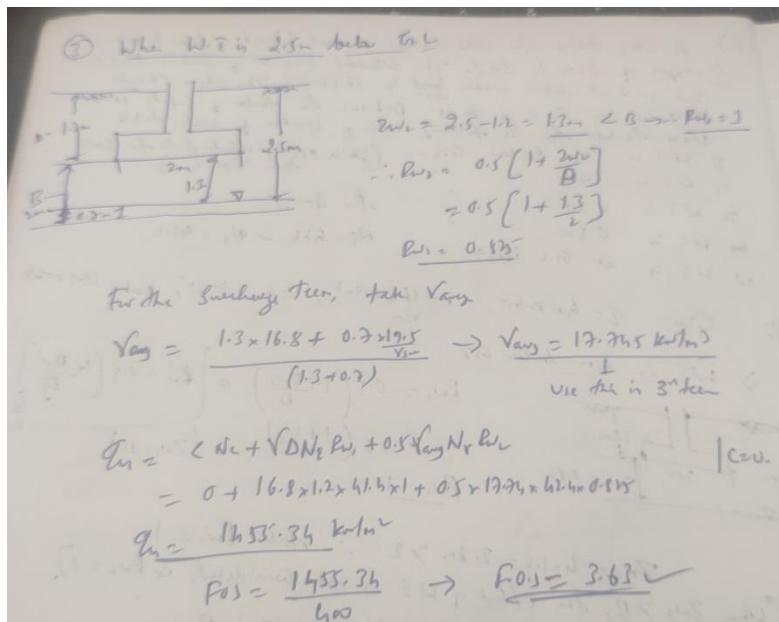 ③ When W.T is 2.5m below G.L
D=1.2m
2m
1.3
2.5m
B
0.7
Zw₂ = 2.5-1.2 = 1.3m < B Rw₁ = 1
∴ Rw₂ = 0.5 [1 + Zw₂/B]
= 0.5 [1 + 1.3/2]
Rw₂ = 0.825
For the Surcharge Term, take γavg
γavg = (1.3 × 16.8 + 0.7 × 19.5)/(1.3+0.7) → γavg = 17.745 kN/m³
γsat
use this in 3rd term
qu = CNc + γDNq Rw₁ + 0.5 γavg Nγ Rw₂
= 0 + 16.8×1.2×41.4×1 + 0.5×17.74×42.4×0.825
C=0
qu = 1455.34 kN/m²
FOS = 1455.34/400 → F.O.S = 3.63 ✓